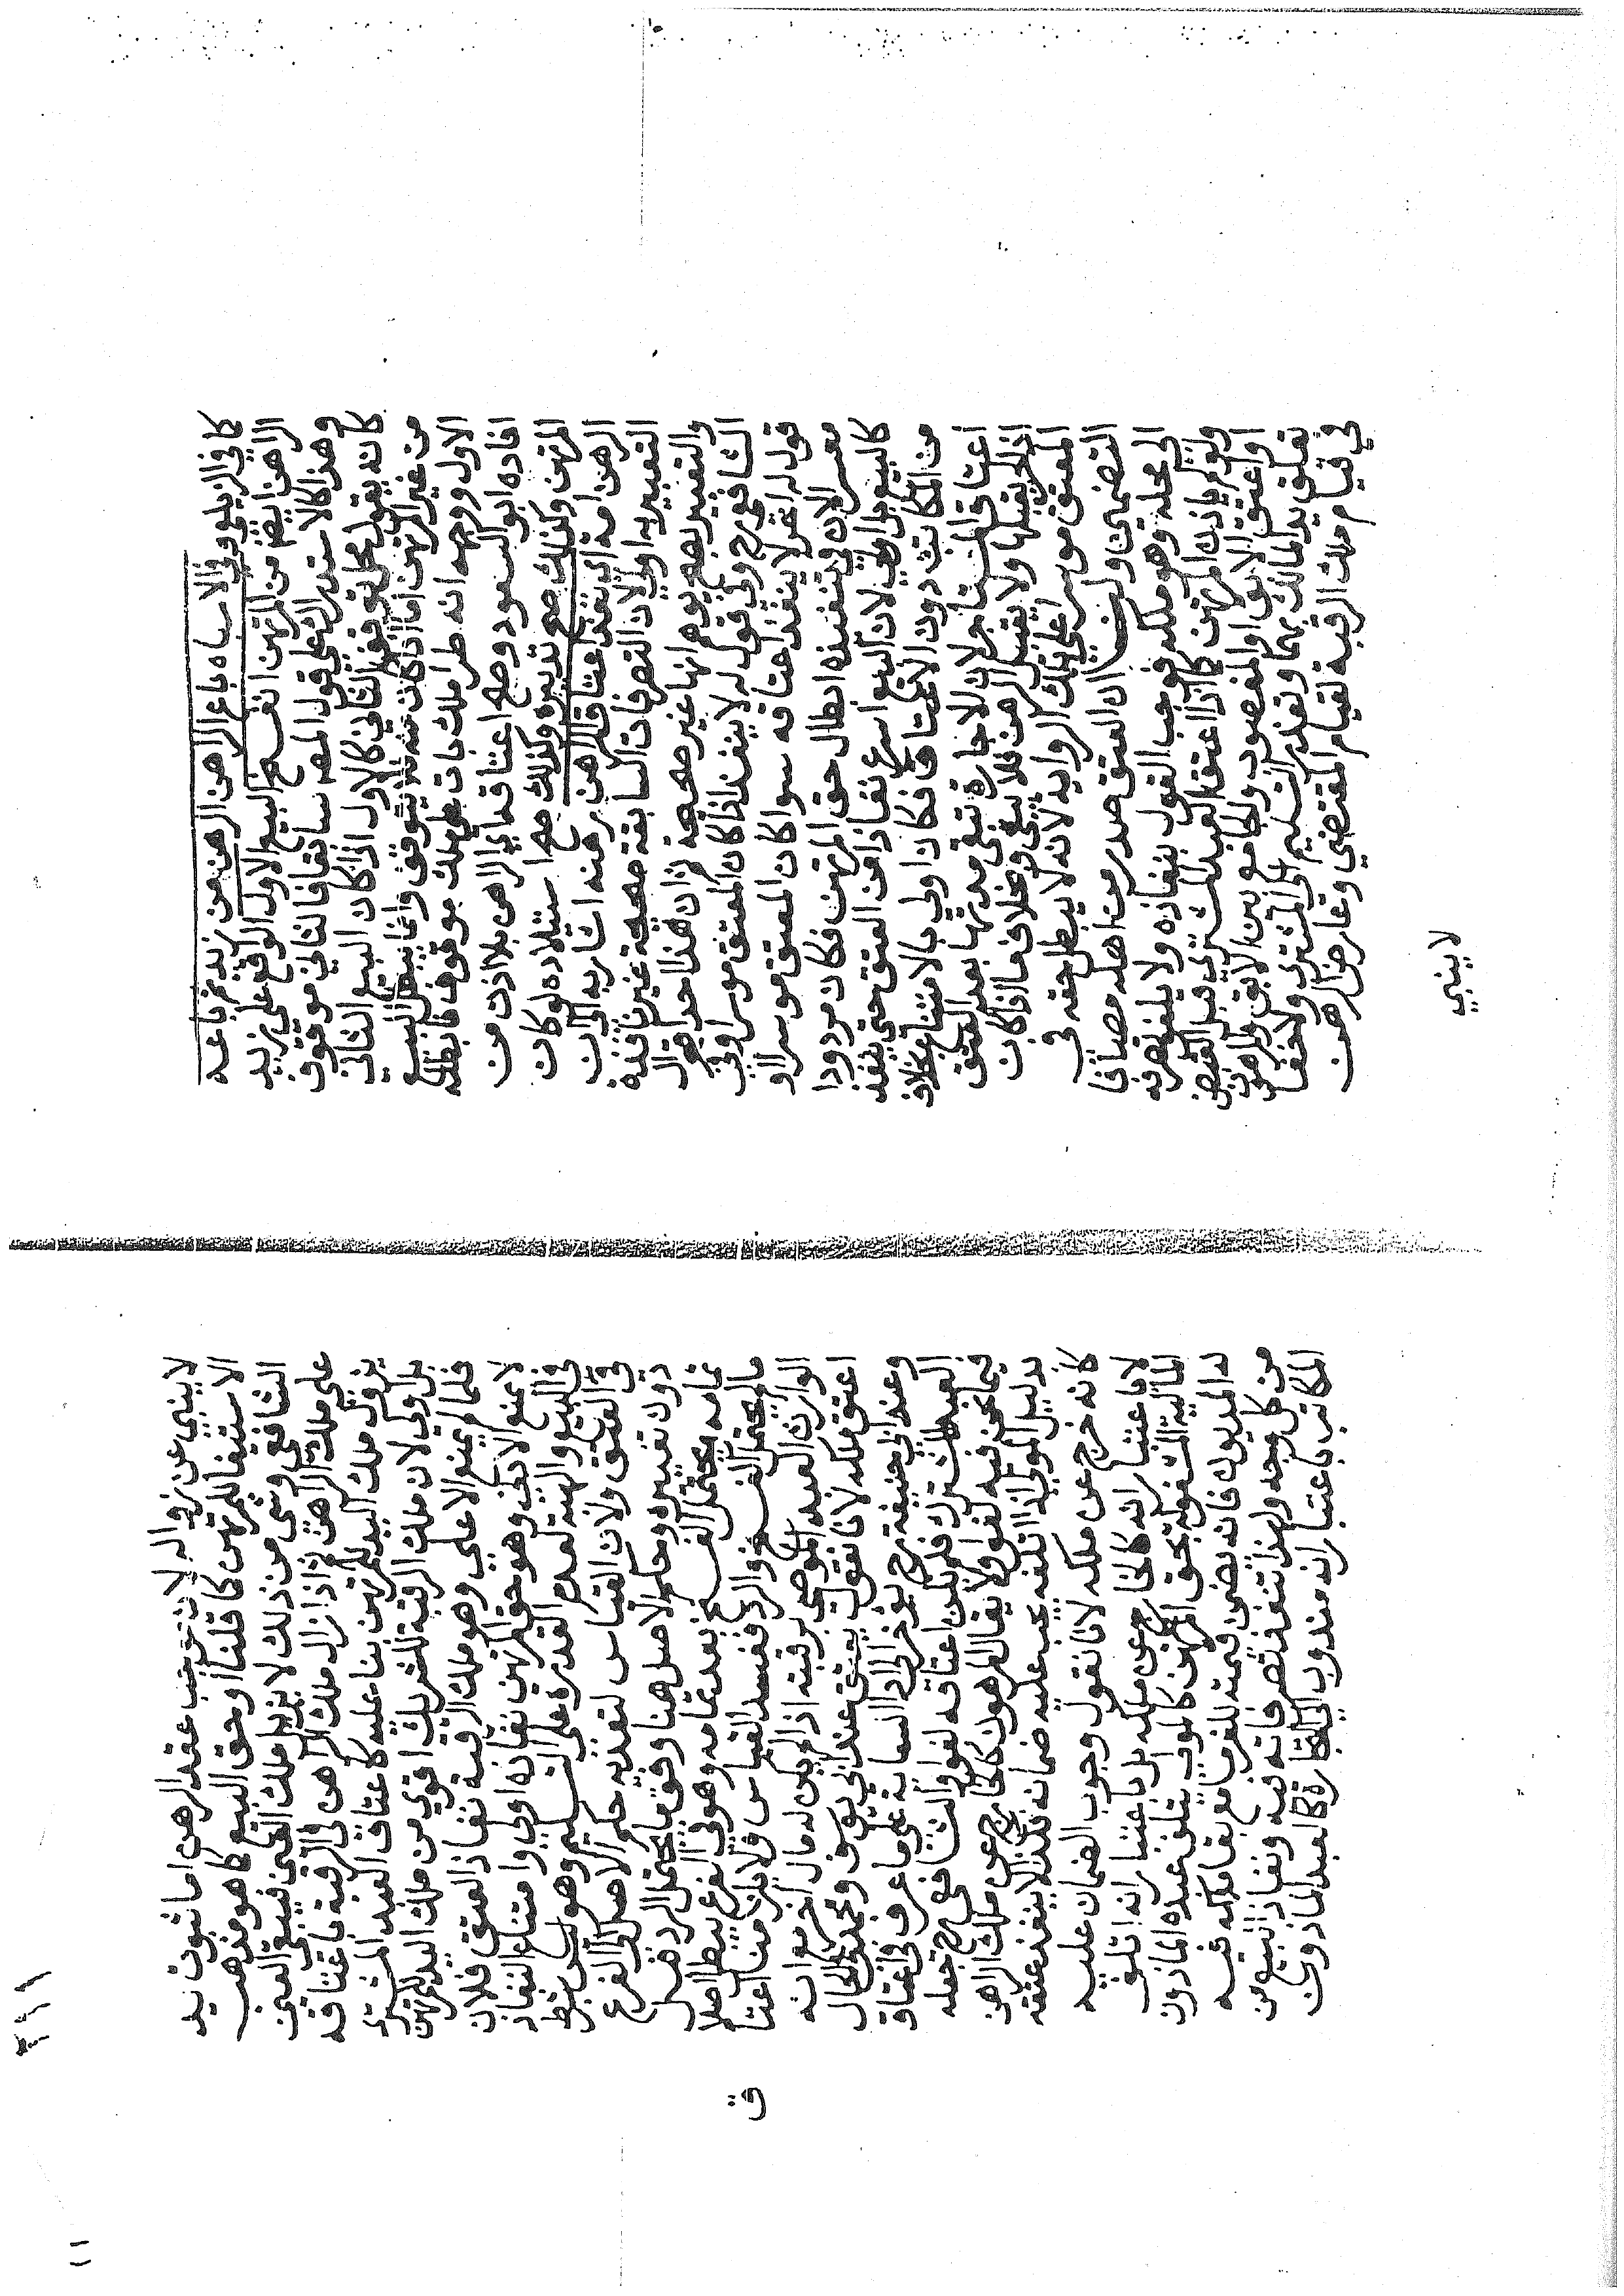 كما في الزيلعي وفي الاشباه باع الراهن الرهن من زيد ثم باعه
الراهن ايضا من المرتهن انفسخ البيع الاول الواقع على زيد
وهذا كالاستدراك على قول المصـ سابقا فالثاني موقوف
كانه يقول محل توقف الثاني كالاول اذا كان البيع الثاني
من غير المرتهن اما اذا كان منه لا يتوقف وانما يبطل البيع
الاول ووجهه انه طرا ملك بات على ملك موقوف فابطله
افاده ابو السعود وصح اعتاقه اي الراهن بلا اذن من
المرتهن وكذلك صح تدبيره وكذلك صح استيلاده لو كان
الرهن امة اي نفذ اعتاق الراهن رهنه اشار به الى ان
التعبير به اولى لان التصرفات السابقة صحيحة غير نافذة
والتعبير بصح يوهم انها غير صحيحة ثم ان هذا احد اقوال
الشافعي رح وفي قول له لا ينفذ اذا كان المعتق موسرا وفي
قول له اخر لا ينفذ اعتاقه سوا كان المعتق موسرا او
معسرا لان في تنفيذه ابطال حق المرتهن فكان مردودا
كالبيع بل اولى لان البيع اسرع نفاذا من العتق حتى ينفذ
من المكاتب دون الاعتاق فكان اولى بالامتناع بخلاف
اعتاق المستاجر لان الاجارة تبقى مدتها بعد العتق
اذ الحر يقبلها ولا يقبل الرهن فلا يبقى وبخلاف ما اذا كان
المعتق موسرا على تلك الرواية لانه لا يبطل حقه في
التضمين ولنا ان العتق صدر من اهله مضافا
الى محله وهو ملكه فوجب القول بنفاذه ولا يلغو تصرفه
ولو لم ياذن المرتهن كما اذا اعتق العبد المشتري قبل القبض
او اعتق الابق او المغصوب والجامع بين الابق والمرهون
تعلق يد المالك بهما وتعذر التسليم الى المشتري ولا خفا
في قيام ملك الرقبة لقيام المقتضي وعارض الرهن
لا ينبي
لا ينبي عن زواله لان موجب عقد الرهن اما ثبوت يد
الاستيفا للمرتهن كما قلنا او حق البيع كما هو مذهب
الشافعي وشي من ذلك لا يزيل ملك العين فيبقى العين
على ملك الراهن ثم اذا زال ملك الراهن في الرقبة باعتاقه
يزول ملك اليد للمرتهن بنا عليه كاعتاق العبد المشترك
بل اولى لان ملك الرقبة للشريك اقوى من ملك اليد للمرتهن
فلما لم يمنع الاعلى وهو ملك الرقبة نفاذ العتق فلان
لا يمنع الادنى وهو حق المرتهن نفاذه اولى وامتناع النفاذ
في البيع والهبة لعدم القدرة على التسليم وهو ليس بشرط
في العتق ولان القياس لتعديه حكم الاصل الى الفرع
دون تغييره وحكم الاصل هنا وقف ما يحتمل الرد قبل
تمامه ويحتمل الفسخ بعد تمامه وهو في الفرع يبطل اصلا
ما لا يحتمل الفسخ والرد ففسد القياس ولا يلزمنا اعتا
ق
الوارث العبد الموصى برقبته اذا لم يكن له مال اخر مع انه
اعتق ملكه لانا نقول يعتق عند ابي يوسف ومحمد في الحال
وعند ابي حنيفة رح يؤخر الى ادا السعاية على ما عرف في اعتاق
العبد المشترك فلم يكن اعتاقه لغوا والشافعي رح جعله
فيما نحن فيه لغوا ولا يقال المرهون كالخارج عن ملك الراهن
بدليل المولى اذا اتلفه يجب عليه ضمانه فلهذا لا ينفذ عتقه
كانه خرج عن ملكه لانا نقول وجوب الضمان عليه
لا باعتبار انه كالخارج عن ملكه بل باعتبار انه اتلف
المالية المشغولة بحق المرتهن كالمولى يتلف عبده الماذون
له المديون فانه يضمن قيمته للغرما مع بقا ملكه فيه
من كل وجه ولهذا تنفذ تصرفاته فيه ونفاذ البيع من
المكاتب باعتبار انه مندوب الى التجارة كالعبد الماذون